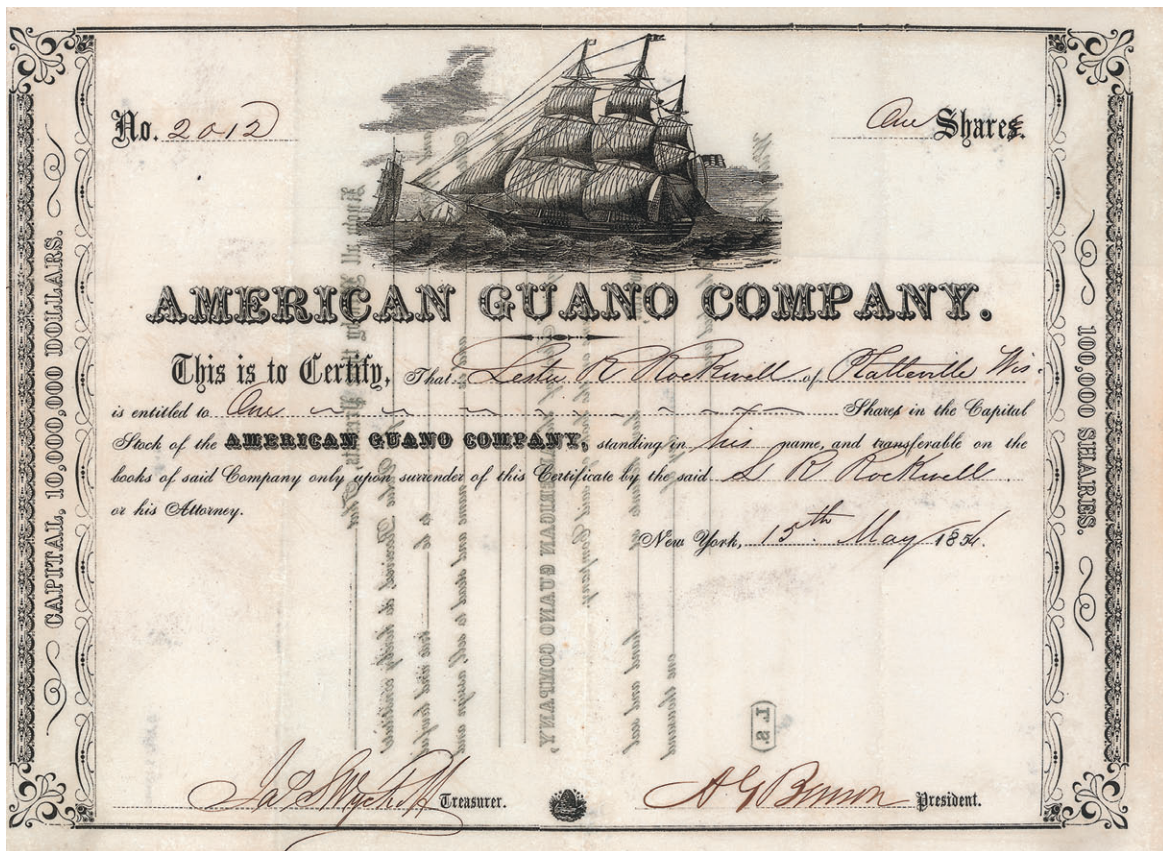 No. 2012
One Share
AMERICAN GUANO COMPANY.
This is to Certify, That Lester R Rockwell of Platteville Wis.
is entitled to One Share in the Capital
Stock of the AMERICAN GUANO COMPANY, standing in his name, and transferable on the
books of said Company only upon surrender of this Certificate by the said L R Rockwell
or his Attorney.
New York, 15th May 1856.
Treasurer.
A G Benson President.
CAPITAL, 10,000,000 DOLLARS.
100,000 SHARES.
L. S.